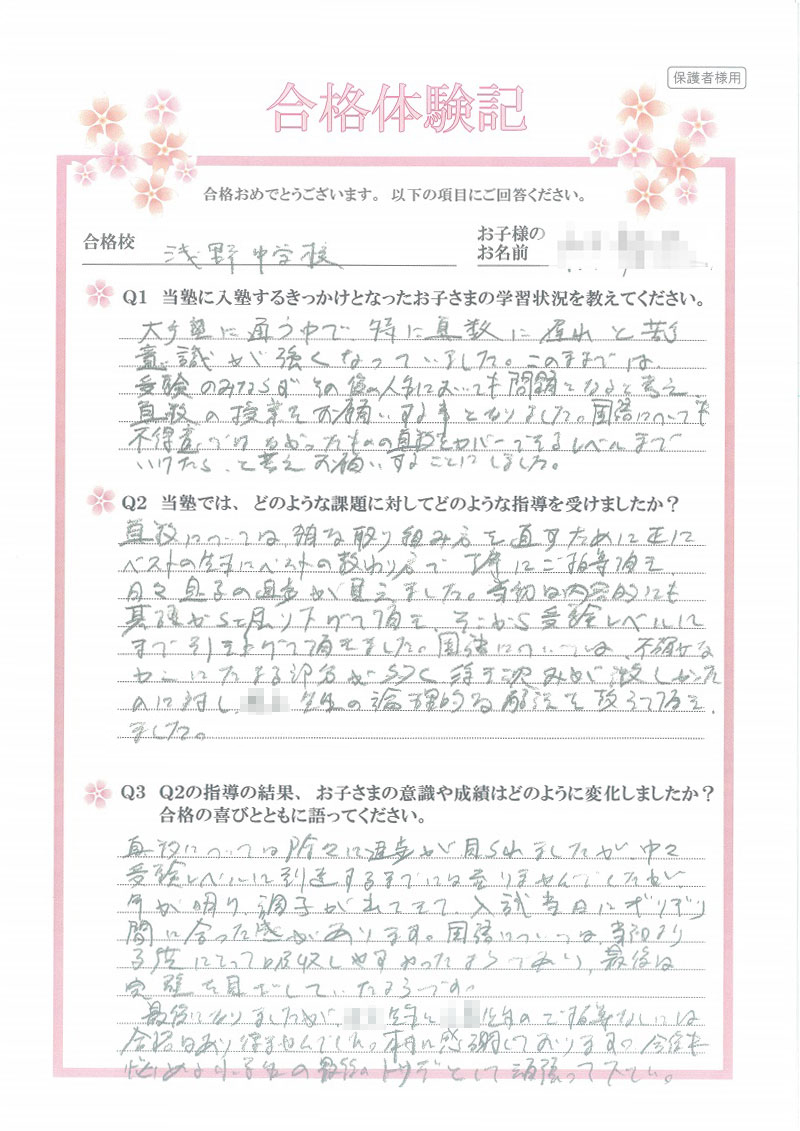 保護者様用
合格体験記
合格おめでとうございます。以下の項目にご回答ください。
合格校 浅野中学校
お子様の
お名前
Q1 当塾に入塾するきっかけとなったお子さまの学習状況を教えてください。
大手塾に通う中で、特に算数に遅れと苦手
意識が強くなっていました。このままでは、
受験のみならずその後の人生においても問題となると考え
算数の授業をお願いする事となりました。国語についても
不得意ではなかったものの算数をカバーできるレベルまで
いけたら、と考えお願いすることにしました。
Q2 当塾では、どのような課題に対してどのような指導を受けましたか？
算数については 雑な取り組み方を直すために正に
ベストの先生にベストの教わり方で丁寧にご指導頂き、
日々息子の進歩が見えました。当初は内容的にも
基礎から掘り下げて頂き、そこから受験レベルに
まで引き上げて頂きました。国語については、不確かな
のに対し、 先生の論理的な解法を教えて頂き
ました。
Q3 Q2の指導の結果、お子さまの意識や成績はどのように変化しましたか？
合格の喜びとともに語ってください。
算数については除々に進歩が見られましたが、中々
受験レベルに到達するまでには至りませんでしたが、
年が明け、調子が出てきて、入試当日にギリギリ
間に合った感があります。国語については、当初より
子供にとって吸収しやすかったようであり、最後は
安定を目ざしていたようです。
最後になりましたが、 先生と 先生のご指導なしには
合格はあり得ませんでした。本当に感謝しております。今後も
悩める小学生の最後のトリデとして頑張って下さい。